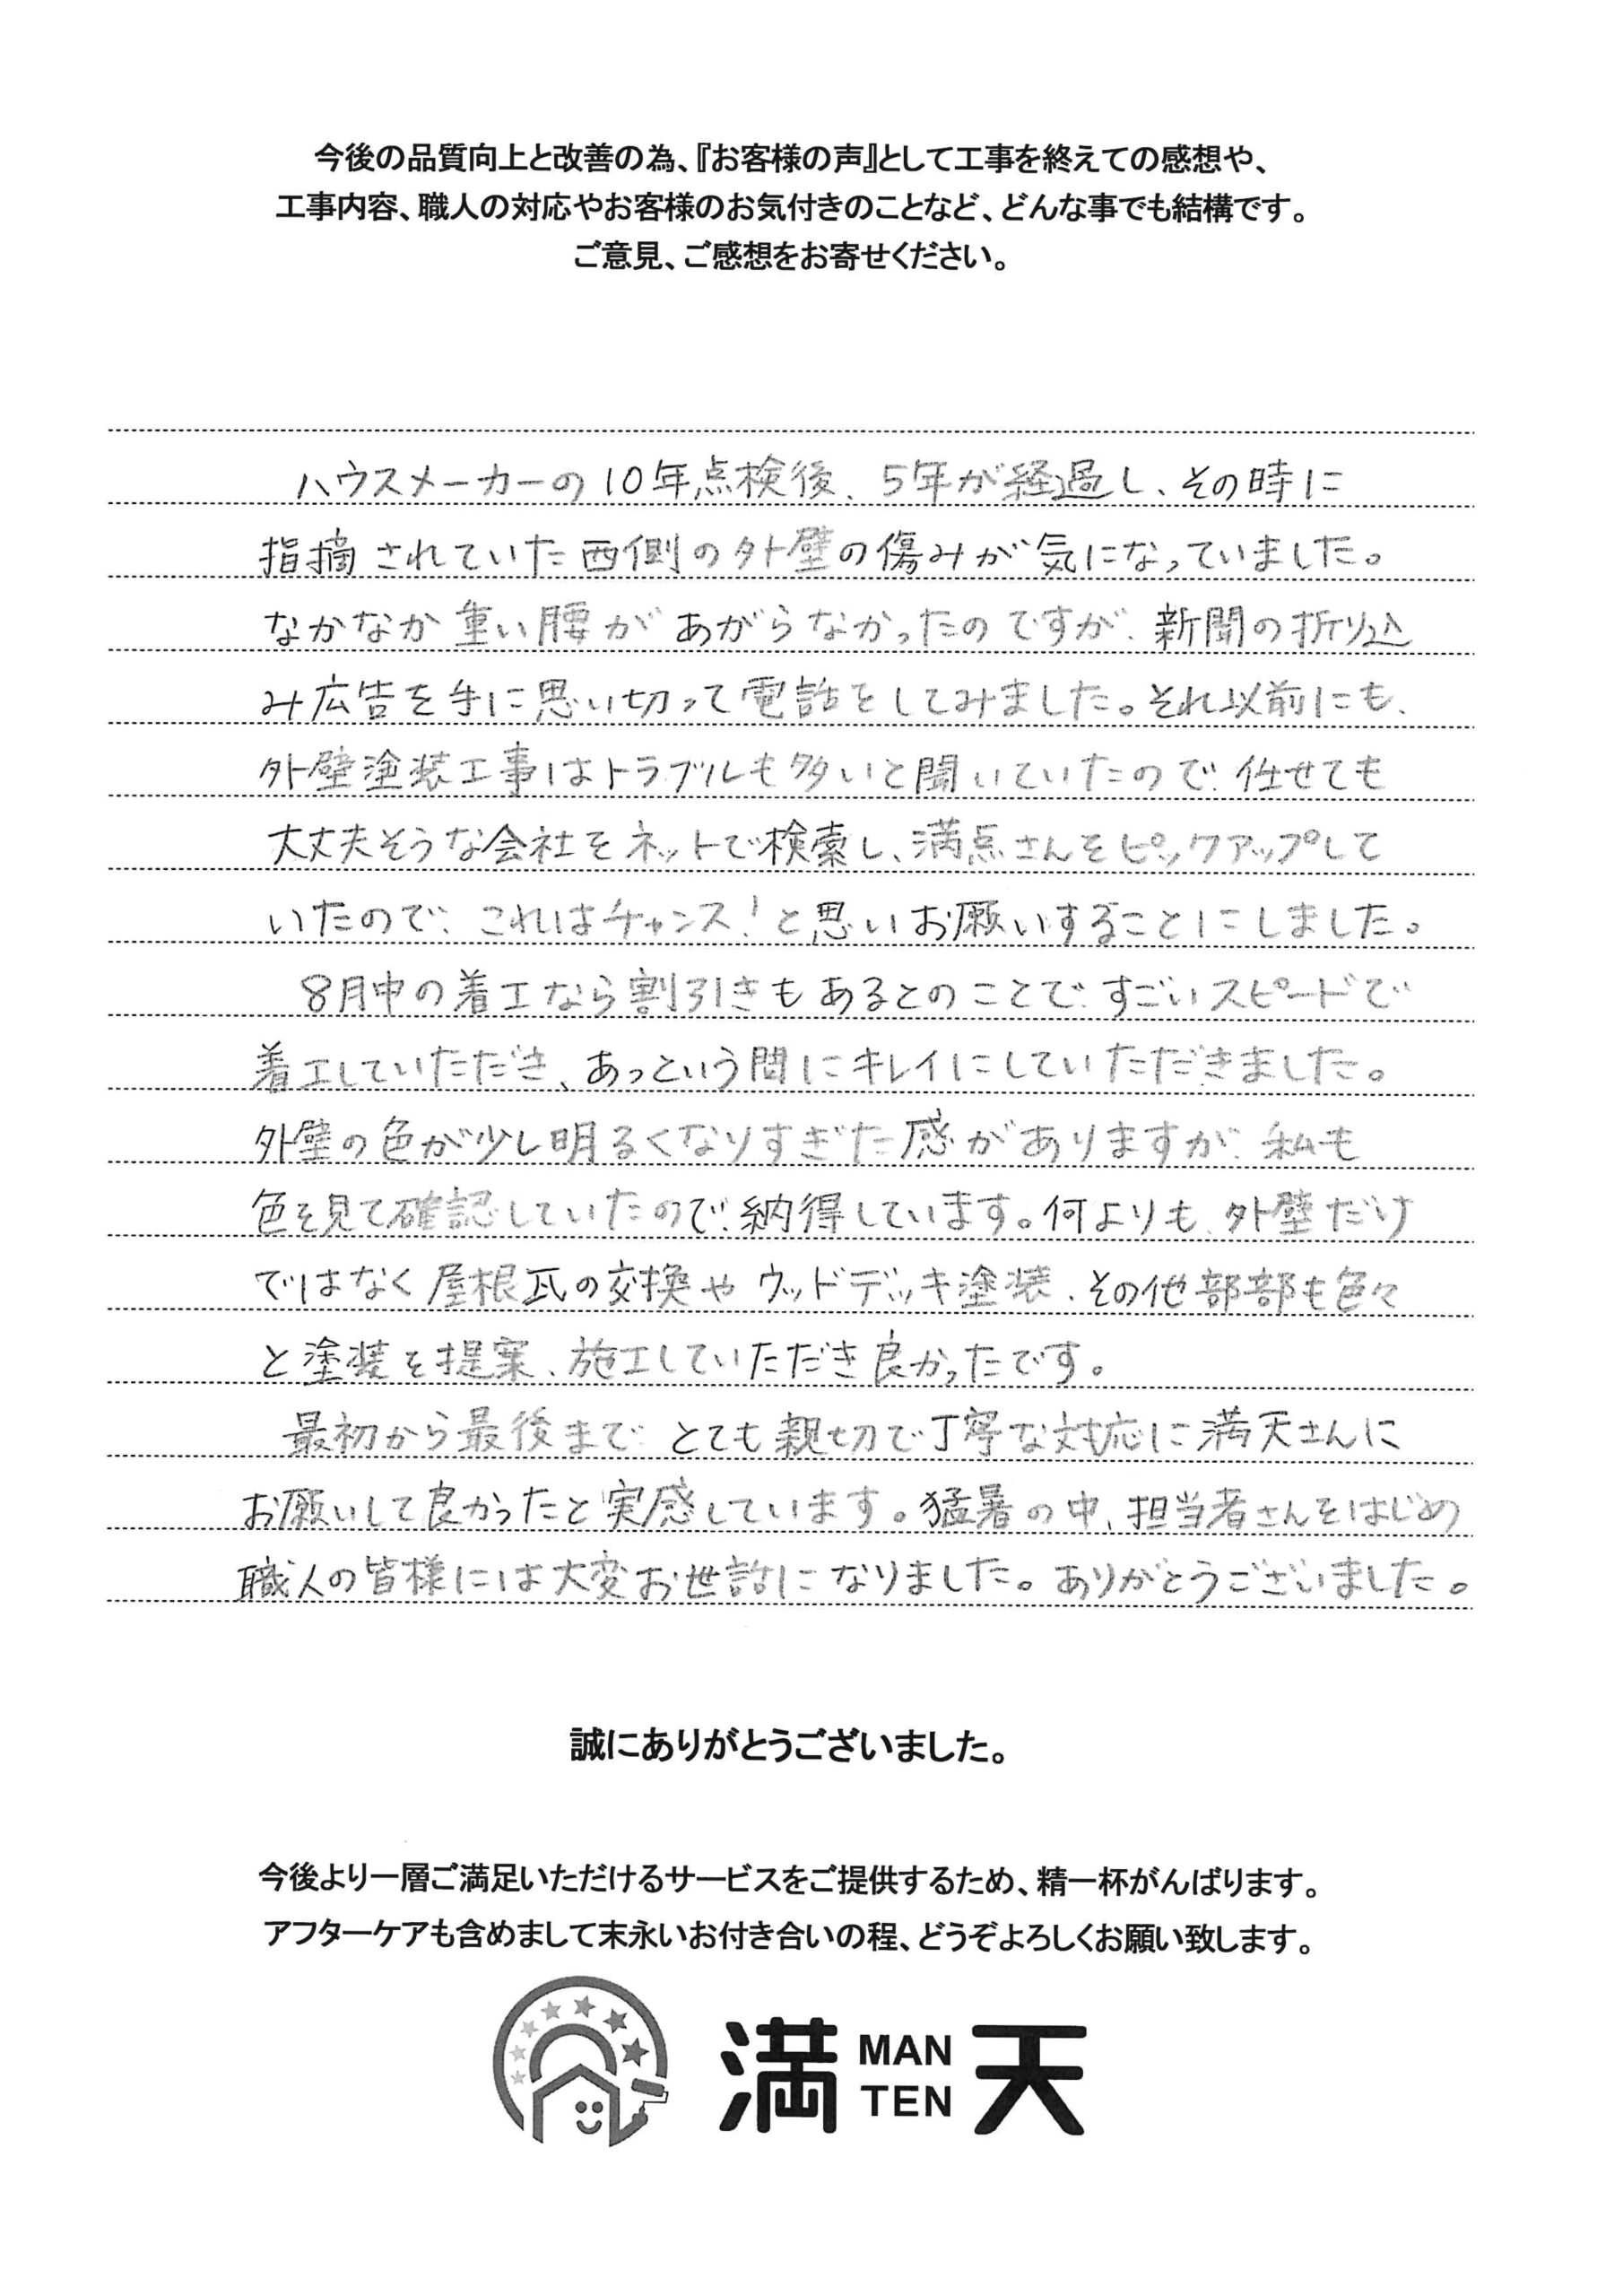 今後の品質向上と改善の為、『お客様の声』として工事を終えての感想や、
工事内容、職人の対応やお客様のお気付きのことなど、どんな事でも結構です。
ご意見、ご感想をお寄せください。
ハウスメーカーの10年点検後、5年が経過し、その時に
指摘されていた西側の外壁の傷みが気になっていました。
なかなか重い腰があがらなかったのですが、新聞の折り込
み広告を手に思い切って電話をしてみました。それ以前にも、
外壁塗装工事はトラブルも多いと聞いていたので、任せても
大丈夫そうな会社をネットで検索し、満点さんをピックアップして
いたので、これはチャンス!と思いお願いすることにしました。
8月中の着工なら割引きもあるとのことで、すごいスピードで
着工していただき、あっという間にキレイにしていただきました。
外壁の色が少し明るくなりすぎた感がありますが、私も
色を見て確認していたので、納得しています。何よりも、外壁だけ
ではなく屋根瓦の交換やウッドデッキ塗装、その他部部も色々
と塗装を提案、施工していただき良かったです。
最初から最後まで、とても親切で丁寧な対応に満天さんに
お願いして良かったと実感しています。猛暑の中、担当者さんをはじめ
職人の皆様には大変お世話になりました。ありがとうございました。
誠にありがとうございました。
今後より一層ご満足いただけるサービスをご提供するため、精一杯がんばります。
アフターケアも含めまして末永いお付き合いの程、どうぞよろしくお願い致します。
満 MAN TEN 天